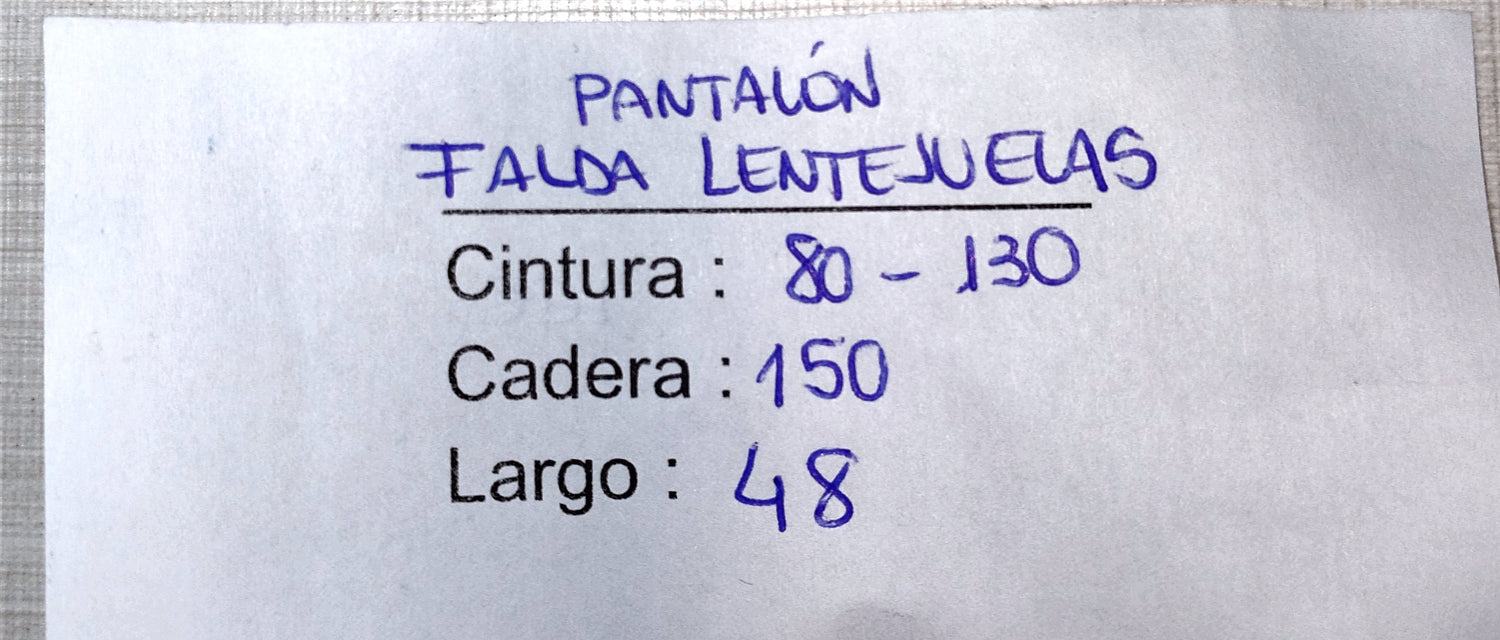 PANTALÓN
FALDA LENTEJUELAS
Cintura : 80 - 130
Cadera : 150
Largo : 48